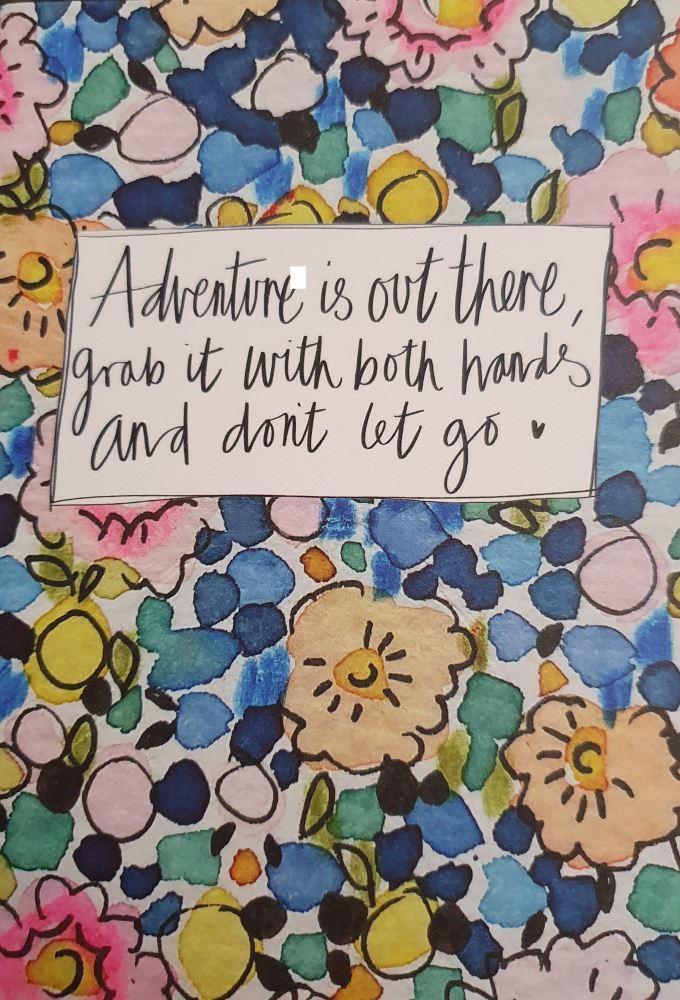 Adventure is out there,
grab it with both hands
and don't let go